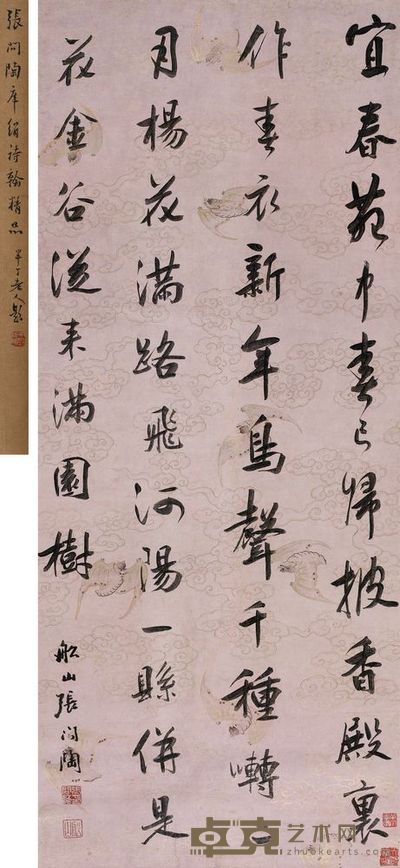 宜春苑中春已歸披香殿裏
作春衣新年鳥聲千種囀一
月楊花滿路飛河陽一縣併是
花金谷從來滿園樹
船山張問陶
張問陶庫絹詩翰精品 半丁老人題
卓克艺术网
zhuokearts.com